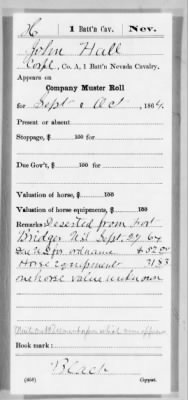 H | 1 Batt'n Cav. | Nev.
John Hall
Corpl., Co. A, 1 Batt'n Nevada Cavalry.
Appears on
Company Muster Roll
for Sept & Oct, 1864.
Present or absent
Stoppage, $ 100 for
Due Gov't, $ 100 for
Valuation of horse, $ 100
Valuation of horse equipments, $ 100
Remarks: Deserted from Fort
Bridger U.T. Sept. 27 64
Due U.S. for ordnance $52.00
Horse Equipments 31 83
one horse value unknown
upon which same appears
Book mark:
Black
(358) Copyist.